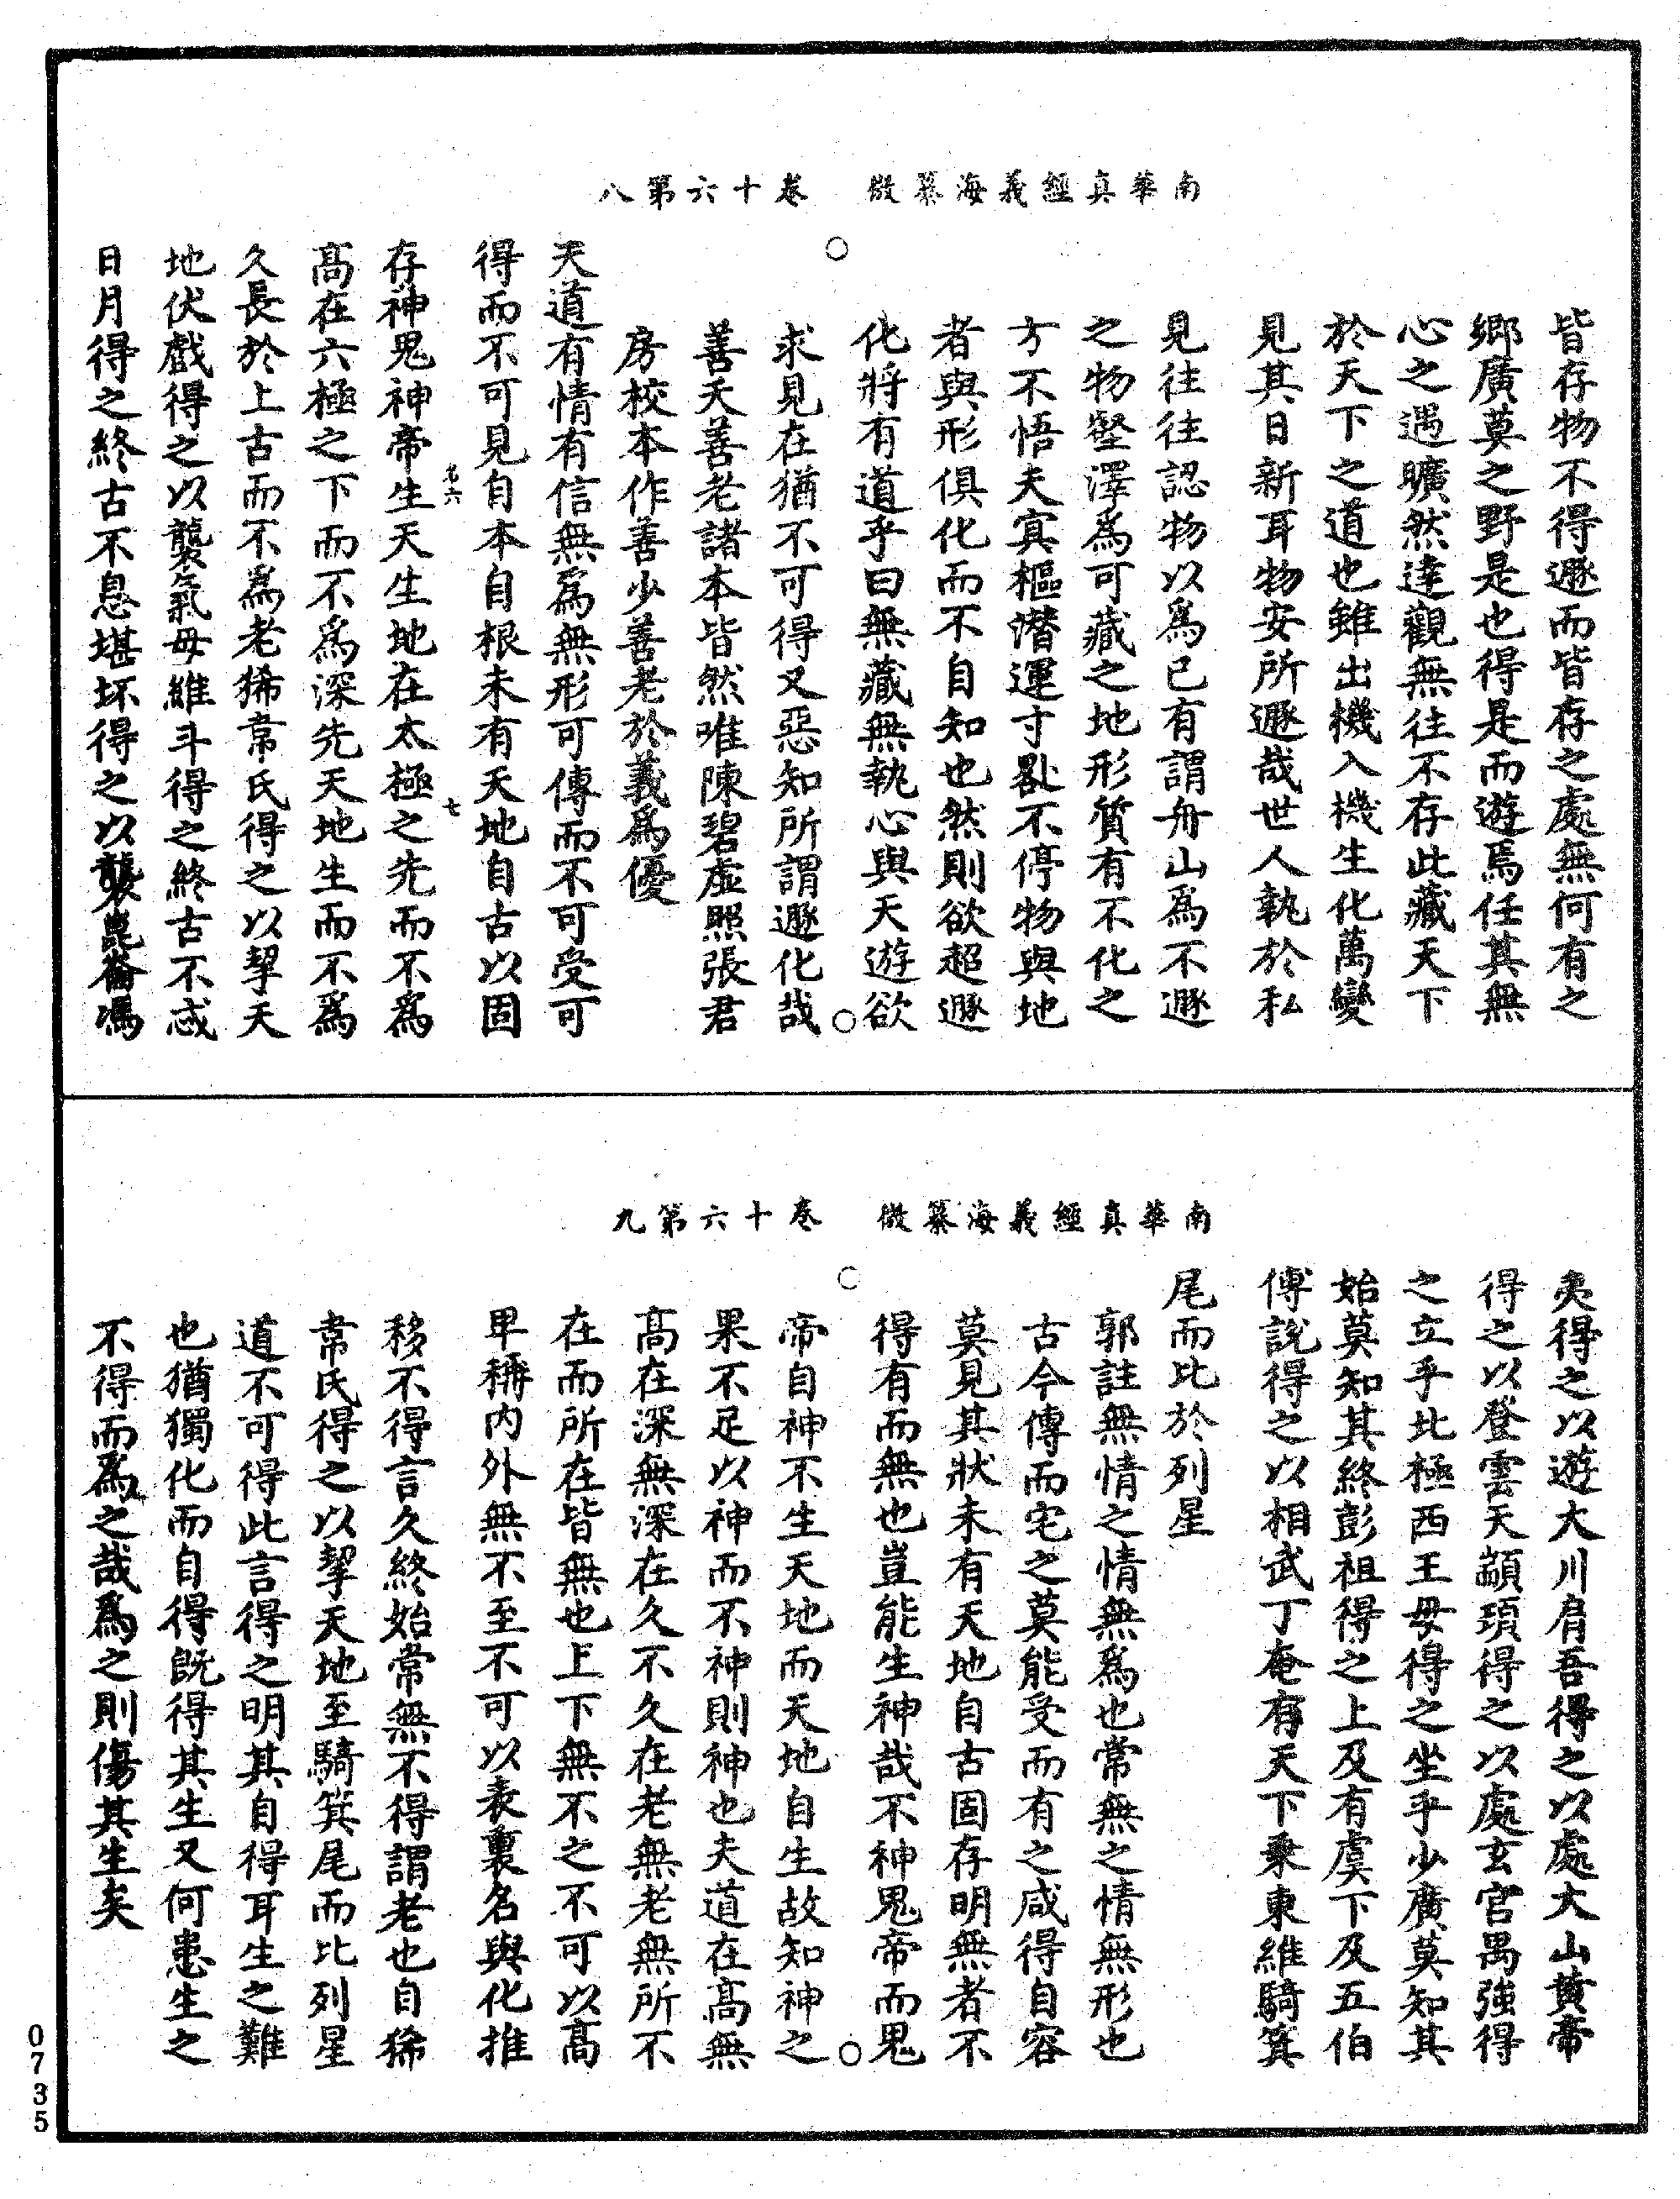 南華真經義海纂微　卷十六第八
皆存物不得遯而皆存之處無何有之
鄉廣莫之野是也得是而遊焉任其無
心之遇曠然達觀無往不存此藏天下
於天下之道也雖出機入機生化萬變
見其日新耳物安所遯哉世人執於私
見往往認物以為已有謂舟山為不遯
之物壑澤為可藏之地形質有不化之
方不悟夫寘樞潛運寸晷不停物與地
者與形俱化而不自知也然則欲超遯
化將有道乎曰無藏無執心與天遊欲
求見在猶不可得又惡知所謂遯化哉
善夭善老諸本皆然唯陳碧虛照張君
房校本作善少善老於義為優
天道有情有信無為無形可傳而不可受可
得而不可見自本自根未有天地自古以固
存神鬼神帝生天生地在太極之先而不為
高在六極之下而不為深先天地生而不為
久長於上古而不為老狶韋氏得之以挈天
地伏戲得之以襲氣母維斗得之終古不忒
日月得之終古不息堪坏得之以襲崑崙馮
老六
七
南華真經義海纂微　卷十六第九
夷得之以遊大川肩吾得之以處大山黄帝
得之以登雲天顓頊得之以處玄宫禺強得
之立乎北極西王母得之坐乎少廣莫知其
始莫知其終彭祖得之上及有虞下及五伯
傅說得之以相武丁奄有天下乘東維騎箕
尾而比於列星
郭註無情之情無為也常無之情無形也
古今傳而宅之莫能受而有之咸得自容
莫見其狀未有天地自古固存明無者不
得有而無也豈能生神哉不神鬼帝而鬼
帝自神不生天地而天地自生故知神之
果不足以神而不神則神也夫道在高無
高在深無深在久不久在老無老無所不
在而所在皆無也上下無不之不可以高
卑稱內外無不至不可以表裏名與化推
移不得言久終始常無不得謂老也自狶
韋氏得之以挈天地至騎箕尾而比列星
道不可得此言得之明其自得耳生之難
也猶獨化而自得既得其生又何患生之
不得而為之哉為之則傷其生矣
0735